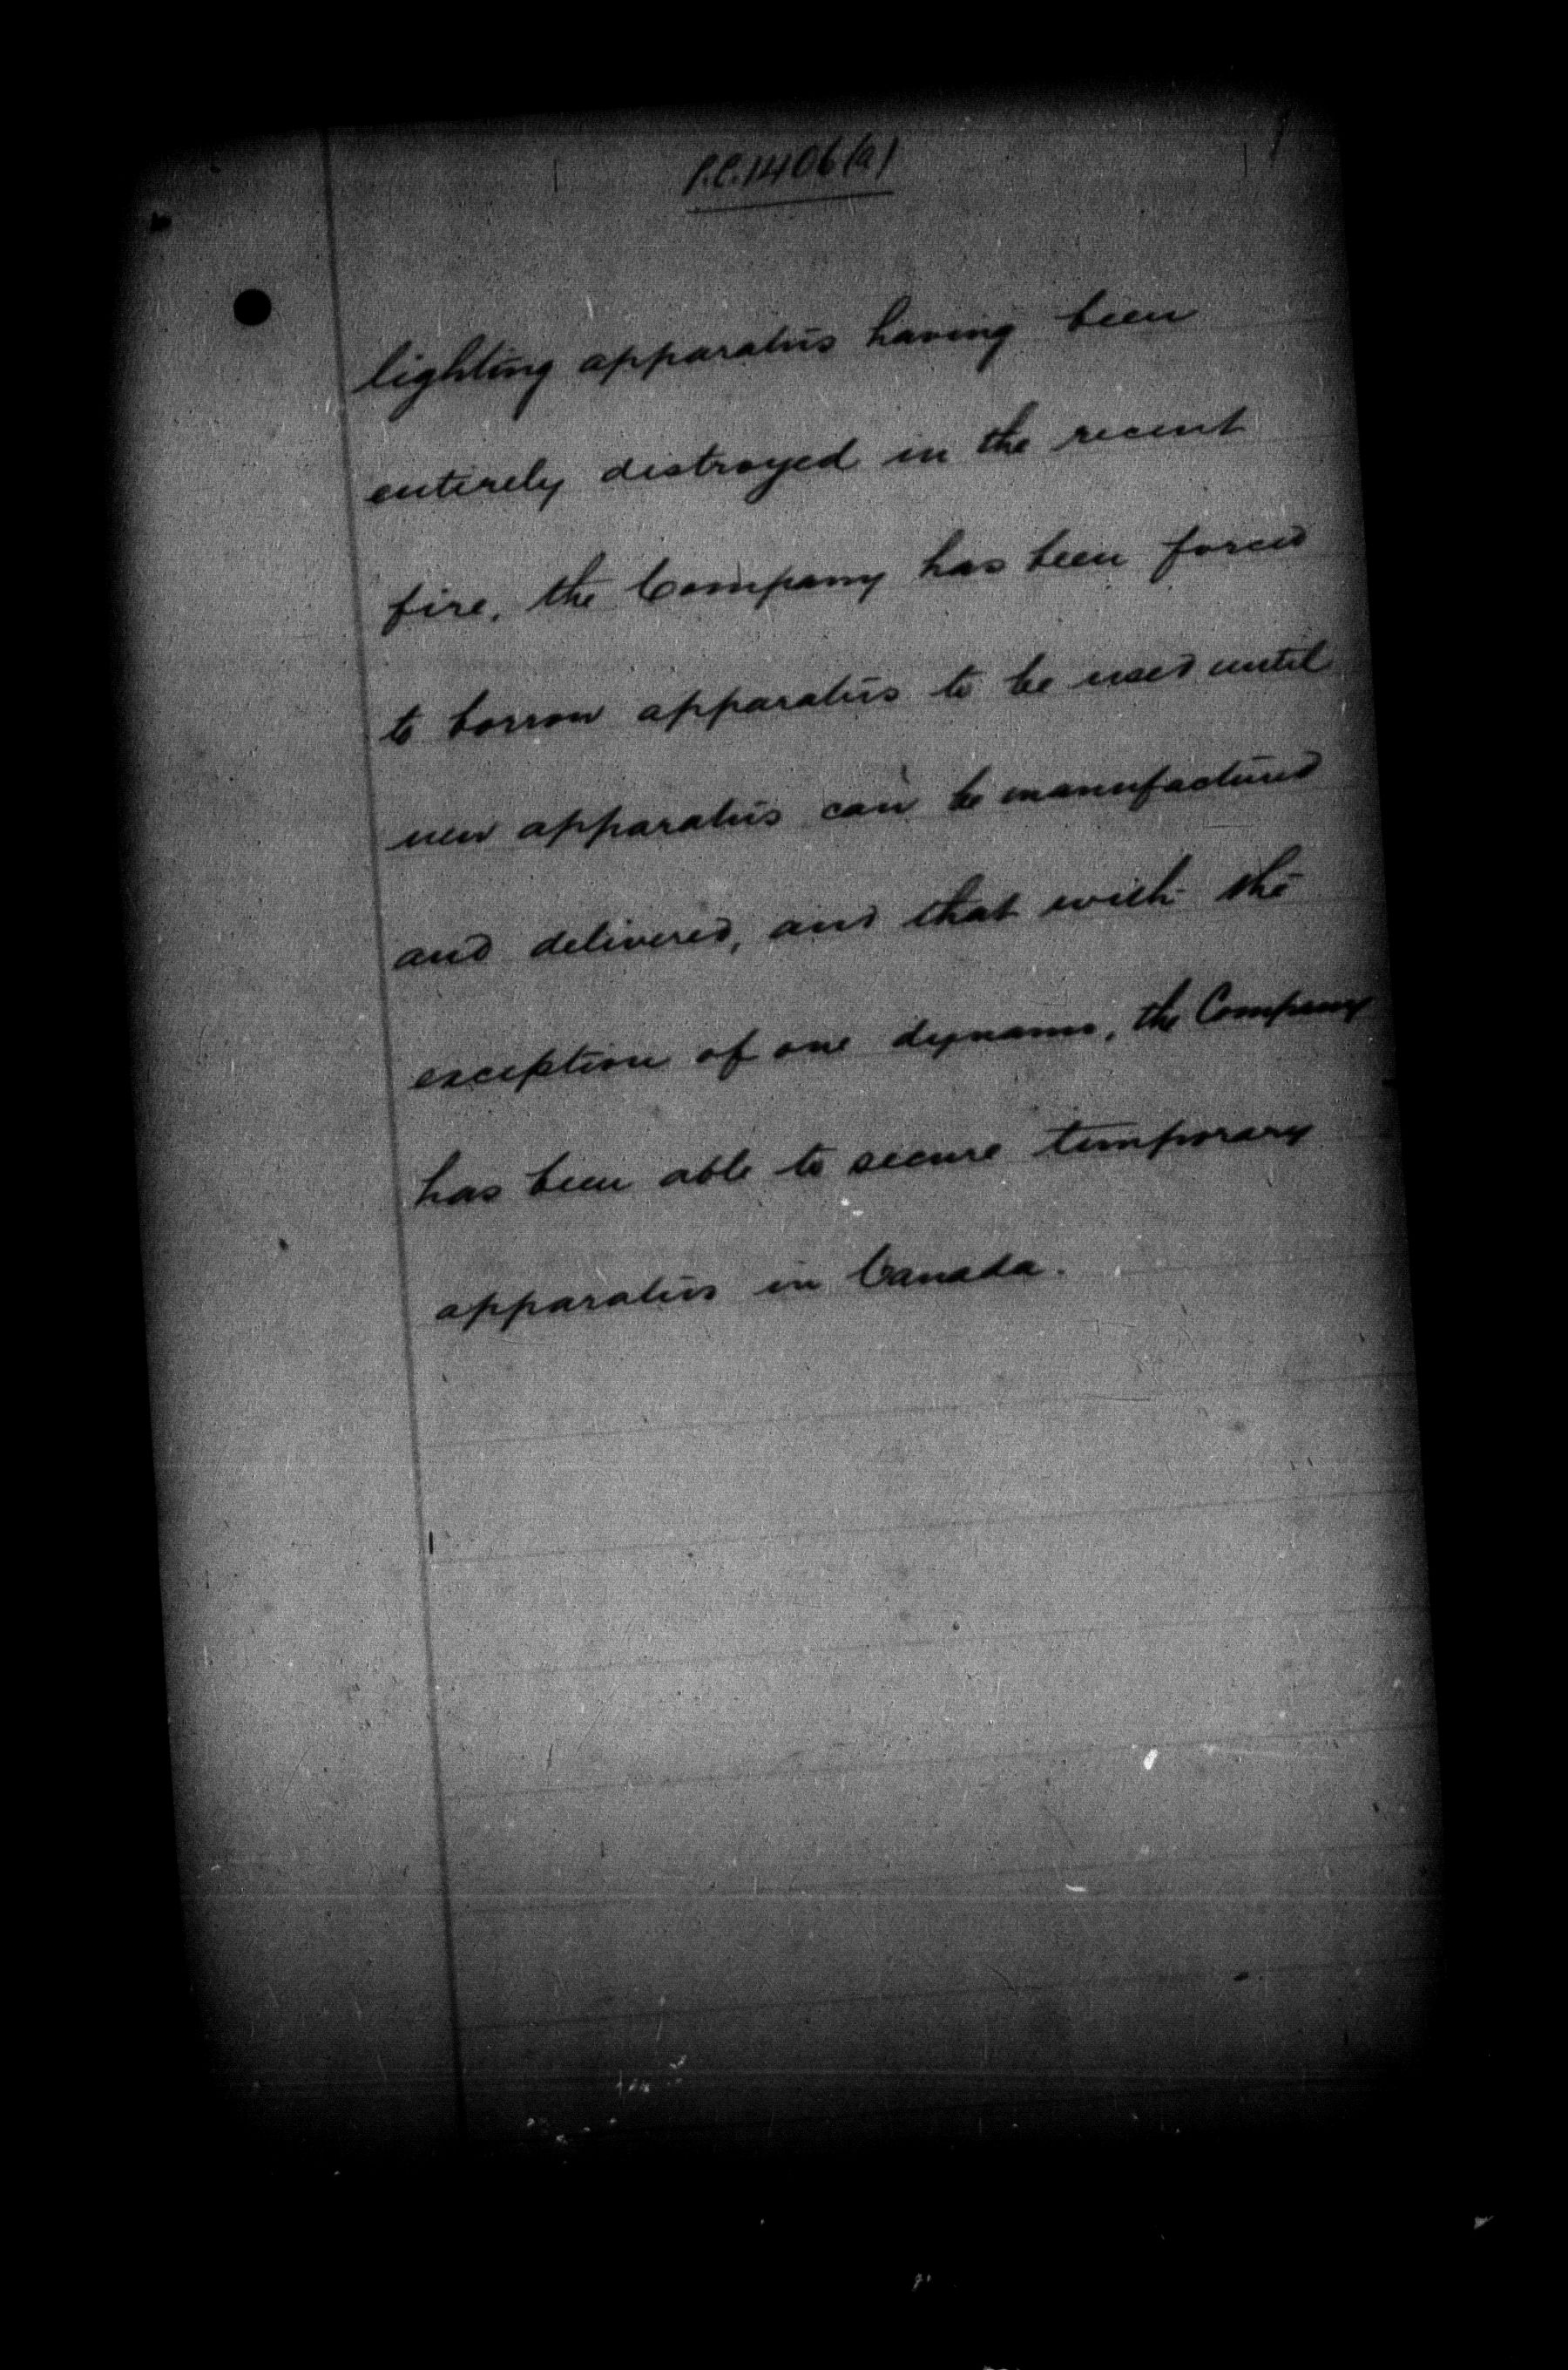 P.C. 1406(a)
lighting apparatus having been
entirely destroyed in the recent
fire, the Company has been forced
to borrow apparatus to be used until
new apparatus can be manufactured
and delivered, and that with the
exception of one dynamo, the Company
has been able to secure temporary
apparatus in Canada.